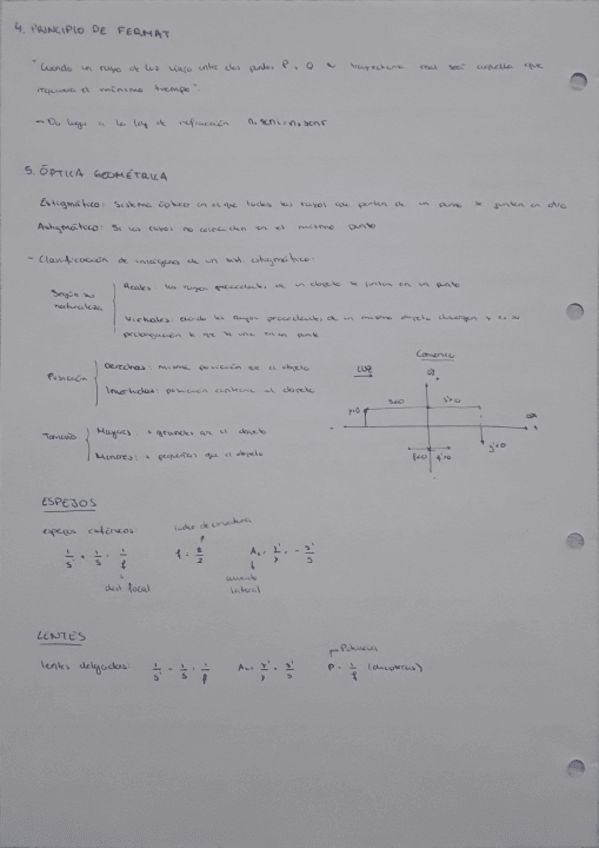 4. PRINCIPIO DE FERMAT
"Cuando un rayo de luz viaja entre dos puntos P y Q la trayectoria real será aquella que
requiera el mínimo tiempo"
→ Da lugar a la ley de refracción n₁ seni = n₂ senr
5. ÓPTICA GEOMÉTRICA
Estigmático: Sistema óptico en el que todos los rayos que parten de un punto se juntan en otro
Astigmático: Si los rayos no coinciden en el mismo punto
- Clasificación de imágenes de un sist. estigmático:
Según su naturaleza
Reales: los rayos procedentes de un objeto se juntan en un punto
Virtuales: cuando los rayos procedentes de un mismo objeto divergen y es su
prolongación la que se une en un punto
Posición
Derechas: misma posición que el objeto
Invertidas: posición contraria al objeto
Tamaño
Mayores: + grandes que el objeto
Menores: + pequeñas que el objeto
Convenio
LUZ
s<0 s'>0
y>0
y'<0
f<0 f'>0
ESPEJOS
espejos esféricos:
1/s' + 1/s = 1/f
dist focal
radio de curvatura
f = R/2
A_L = y'/y = - s'/s
aumento
lateral
LENTES
lentes delgadas: 1/s' - 1/s = 1/f' A_L = y'/y = s'/s P = 1/f' (dioptrías)
Potencia